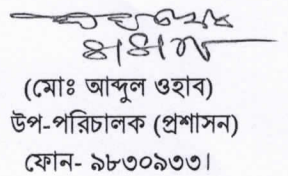 (মোঃ আব্দুল ওহাব)
উপ-পরিচালক (প্রশাসন)
ফোন- ৯৮৩০৯৩৩।